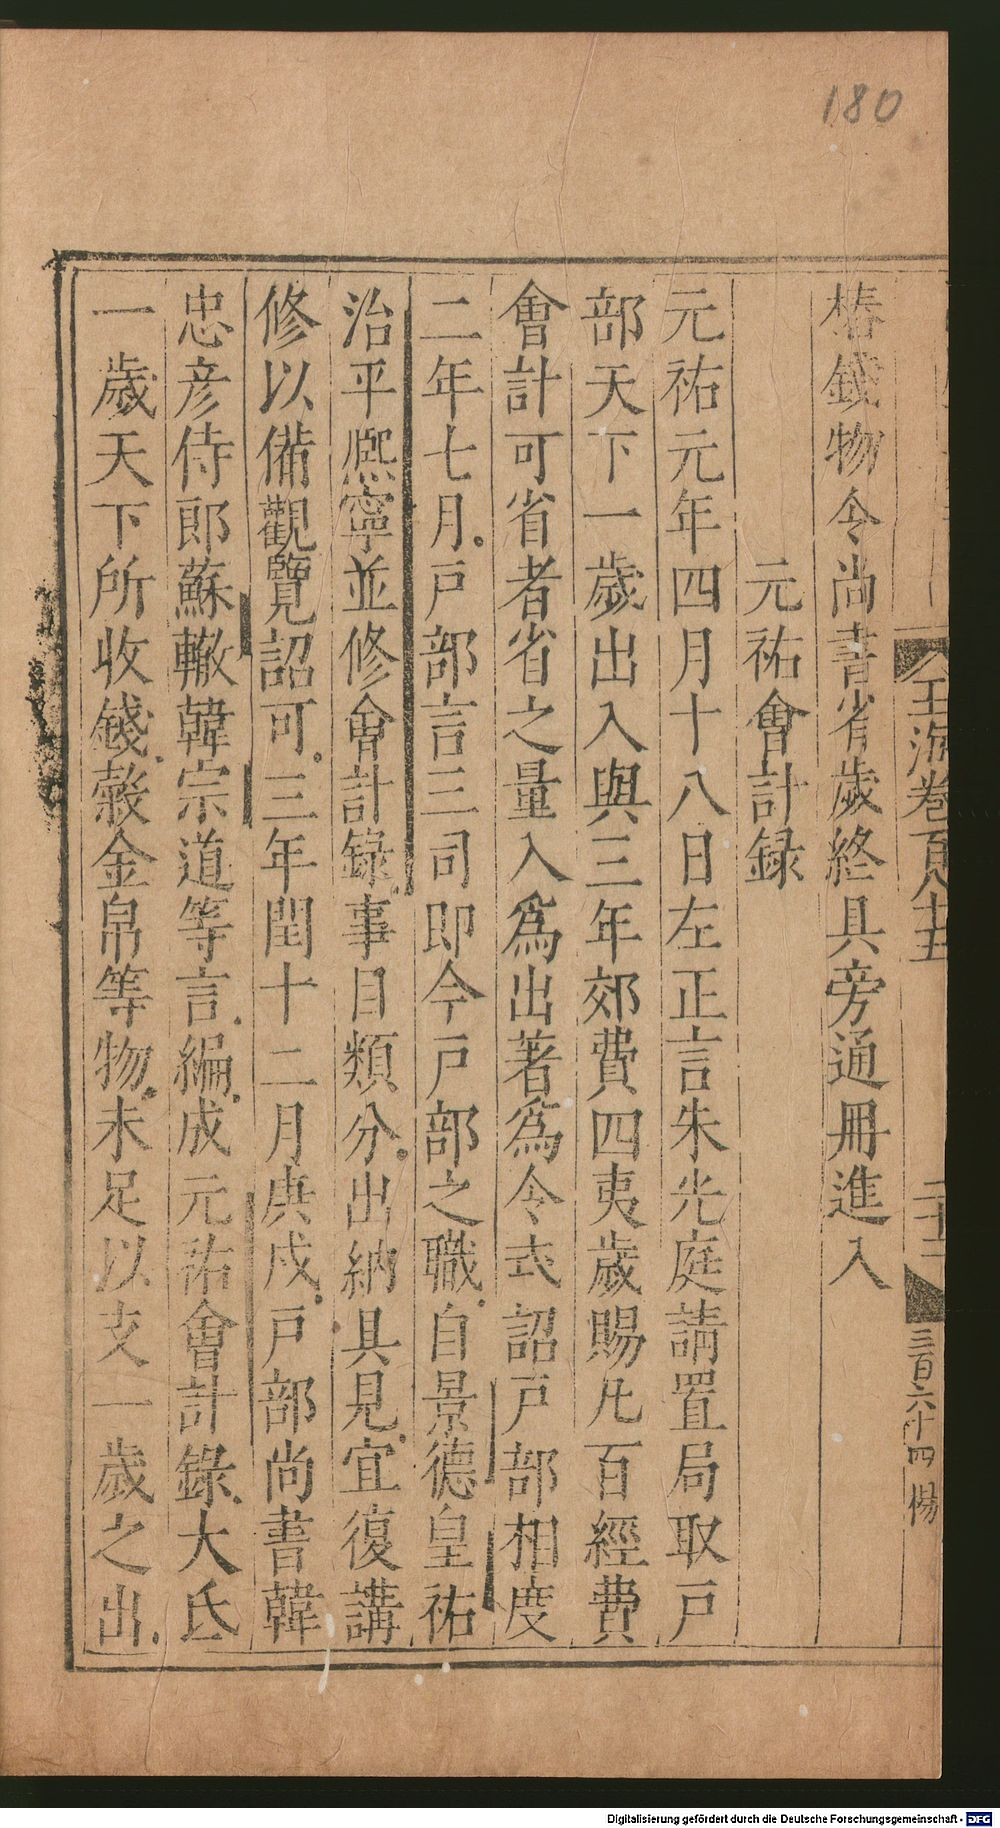 180
樁錢物令尚書省歲終具旁通冊進入
元祐會計録
元祐元年四月十八日左正言朱光庭請置局取戶
部天下一歲出入與三年郊費四夷歲賜凡百經費
會計可省者省之量入爲出著爲令式詔戶部相度
二年七月戶部言三司即今戶部之職自景德皇祐
治平熈寧並修會計錄事目類分出納具見宜復講
修以備觀覽詔可三年閏十二月庚戌戶部尚書韓
忠彦侍郎蘇轍韓宗道等言編成元祐會計錄大氐
一歲天下所收錢榖金帛等物未足以支一歲之出
玉海卷百八十五
三百六十四 楊
Digitalisierung gefördert durch die Deutsche Forschungsgemeinschaft - DFG